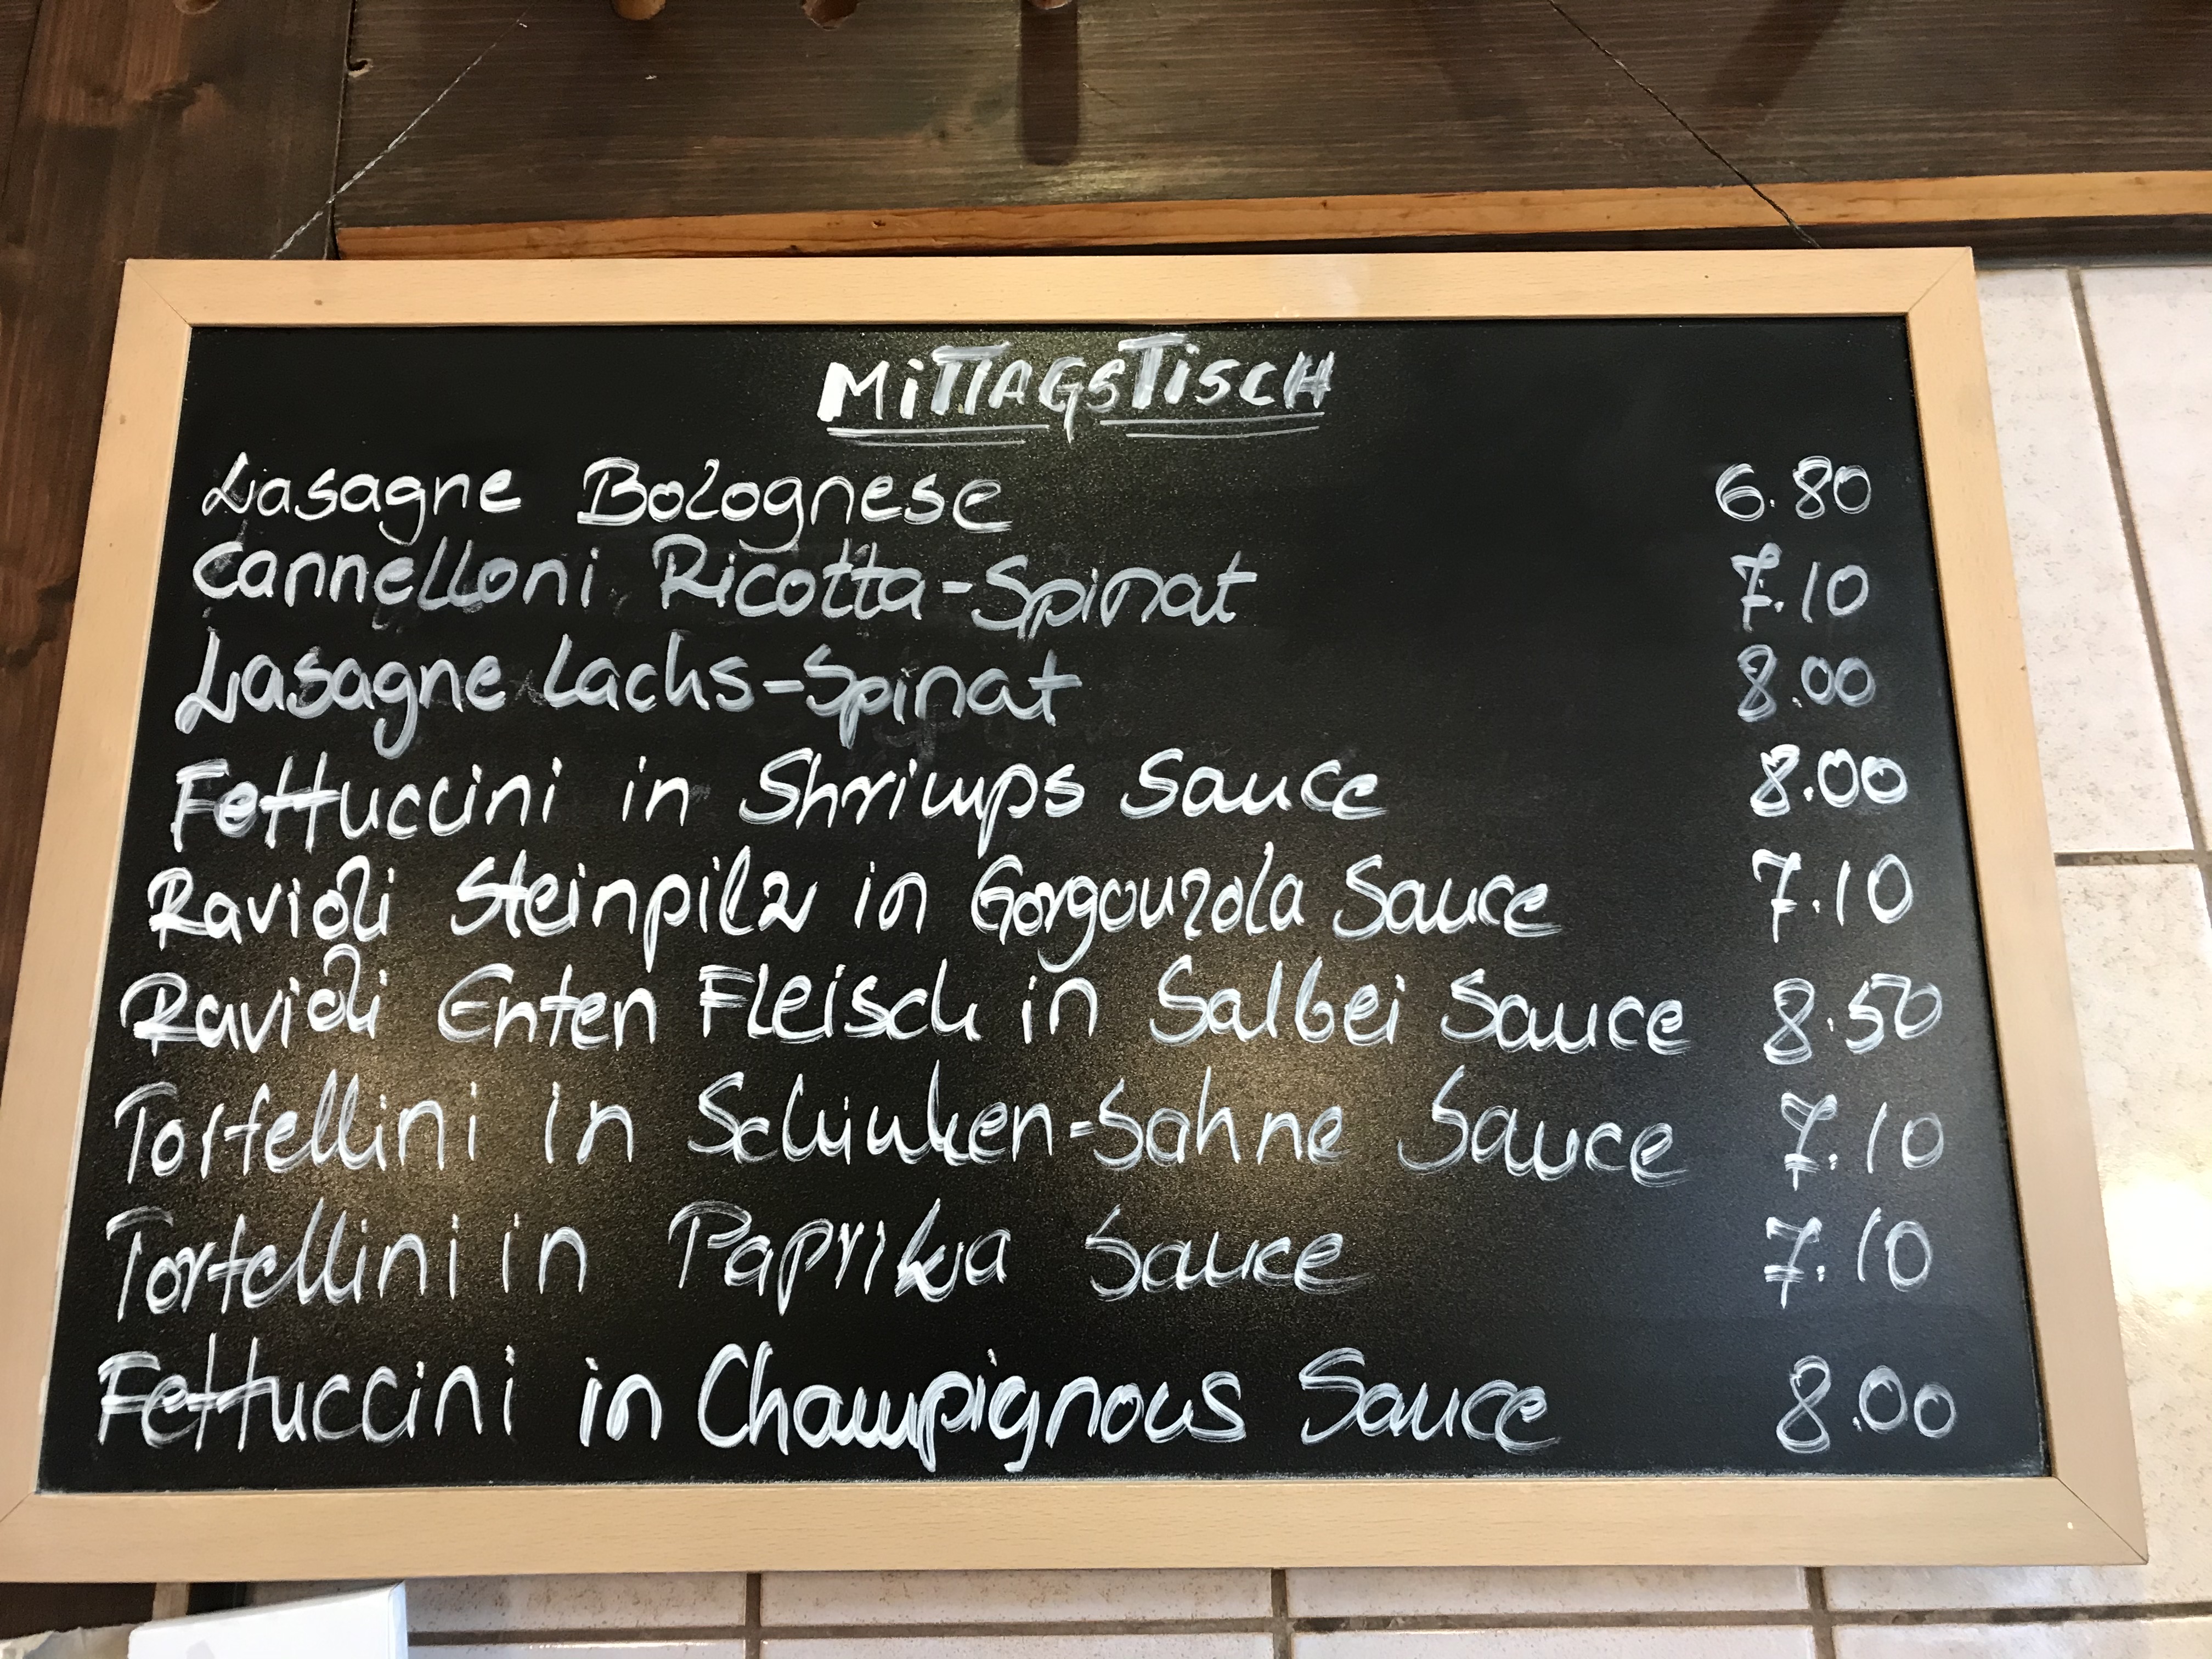 MiTTAGSTiSCH
Lasagne Bolognese 6.80
Cannelloni Ricotta-Spinat 7.10
Lasagne Lachs-Spinat 8.00
Fettuccini in Shrimps Sauce 8.00
Ravioli Steinpilz in Gorgonzola Sauce 7.10
Ravioli Enten Fleisch in Salbei Sauce 8.50
Tortellini in Schinken-Sahne Sauce 7.10
Tortellini in Paprika Sauce 7.10
Fettuccini in Champignons Sauce 8.00